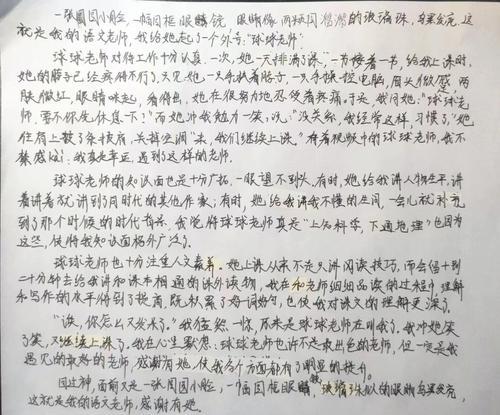 一张圆圆小脸，一幅圆框眼睛镜，眼睛像两颗闪着的玻璃珠，乌黑发亮。这
就是我的语文老师，我给她起了一个外号："球球老师"
球球老师对待工作十分认真。一次，她一天排满了课，一节接着一节，给我上课时，
她的脖子已经疼得不行了，只见她一只手扶着脖子，一只手操控电脑，眉头微蹙，两
肤微红，眼睛眯起，看得出，她在很努力地忍受着疼痛。于是，我问她："球球老
师，要不你先休息一下？"而她冲我勉力一笑，说："没关系，我经常这样，习惯了。"她
住肩上披了条披肩，关掉空调"来，我们继续上课。"看着视频中的球球老师，我不
禁感叹：我真是幸运，遇到这样的老师。
球球老师的知识面也是十分广括，一眼望不到头，有时，她给我讲人物生平，讲
着讲着就讲到同时代的其他作家，有时，她给我讲我不懂的空间，一会儿就补充
到了那个时候的时代背景，我觉得球球老师真是"上知科学，下通地理"也因为
这些，使得我知识面格外广泛了。
球球老师也十分注重人文素养。她上课从来不是只讲阅读技巧，而会借十到
二十分钟去给我讲和课本相通的课外读物，我在和老师细细品读的过程中理解
和写作的水平得到了提高，既积累了好词好句，也使我对课文的理解更深了。
"诶，你怎么又发呆了。"我猛然一惊，原来是球球老师在叫我了，我冲她笑
了笑，又继续上课了。我在心里默念：球球老师也许不是最出色的老师，但一定是我
遇见的最好的老师，感谢有她，使我各个方面都有了明显的提升。
回过神，面前又是一张圆圆小脸，一幅圆框眼镜，玻璃珠似的眼睛乌黑发亮，
这就是我的语文老师，感谢有她。